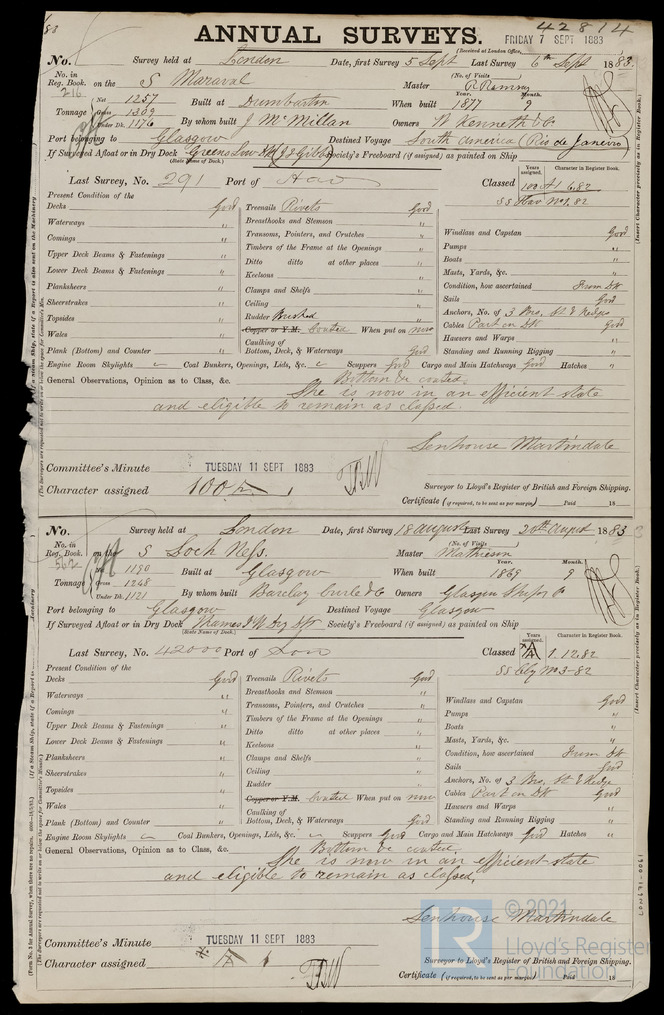 42814
ANNUAL SURVEYS.
(Received at London Office,
FRIDAY 7 SEPT 1883
No. Survey held at London Date, first Survey 5 Sept Last Survey 6th Sept 1883.
No. in Reg. Book. 216 on the S Maraval Master R Ramsay
(No. of Visits
Tonnage Net 1257 Gross 1309 Under Dk. 1176
Built at Dumbarton When built Year. 1877 Month. 9
By whom built J McMillan Owners W Kenneth & Co
Port belonging to Glasgow Destined Voyage South America (Rio de Janeiro)
If Surveyed Afloat or in Dry Dock Greens Low Dk Society's Freeboard (if assigned) as painted on Ship
(State Name of Dock.)
Last Survey, No. 291 Port of Hav Classed Years assigned. 100 A1 Character in Register Book. 6,82
SS Hav No1.82
Present Condition of the
Decks Good
Waterways "
Comings "
Upper Deck Beams & Fastenings "
Lower Deck Beams & Fastenings "
Planksheers "
Sheerstrakes "
Topsides "
Wales "
Plank (Bottom) and Counter "
Treenails Rivets Good
Breasthooks and Stemson "
Transoms, Pointers, and Crutches "
Timbers of the Frame at the Openings "
Ditto ditto at other places "
Keelsons "
Clamps and Shelfs "
Ceiling "
Rudder Bushed
Copper or Y.M. Coated When put on now
Caulking of Bottom, Deck, & Waterways Good
Windlass and Capstan Good
Pumps "
Boats "
Masts, Yards, &c. "
Condition, how ascertained From Dk
Sails Good
Anchors, No. of 3 Bro, St & Kedge
Cables Part on Dk Good
Hawsers and Warps "
Standing and Running Rigging "
Engine Room Skylights Coal Bunkers, Openings, Lids, &c. Scuppers Good Cargo and Main Hatchways Good Hatches "
General Observations, Opinion as to Class, &c. Bottom &c coated.
She is now in an efficient state
and eligible to remain as classed.
Senhouse Martindale
Committee's Minute TUESDAY 11 SEPT 1883
Character assigned 100 A 1
Surveyor to Lloyd's Register of British and Foreign Shipping.
Certificate (if required, to be sent as per margin) Paid 18
No. Survey held at London Date, first Survey 18 August Last Survey 20th August 1883
No. in Reg. Book. 562 on the S Loch Ness. Master Mathieson
(No. of Visits
Tonnage Net 1190 Gross 1248 Under Dk. 1121
Built at Glasgow When built Year. 1869 Month. 9
By whom built Barclay Curle & Co Owners Glasgow Shipg Co
Port belonging to Glasgow Destined Voyage Glasgow
If Surveyed Afloat or in Dry Dock Society's Freeboard (if assigned) as painted on Ship
(State Name of Dock.)
Last Survey, No. 42000 Port of Lon Classed Years assigned. A Character in Register Book. 1.12.82
No3-82
Present Condition of the
Decks Good
Waterways "
Comings "
Upper Deck Beams & Fastenings "
Lower Deck Beams & Fastenings "
Planksheers "
Sheerstrakes "
Topsides "
Wales "
Plank (Bottom) and Counter "
Treenails Rivets Good
Breasthooks and Stemson "
Transoms, Pointers, and Crutches "
Timbers of the Frame at the Openings "
Ditto ditto at other places "
Keelsons "
Clamps and Shelfs "
Ceiling "
Rudder "
Copper or Y.M. Coated When put on now
Caulking of Bottom, Deck, & Waterways Good
Windlass and Capstan Good
Pumps "
Boats "
Masts, Yards, &c. "
Condition, how ascertained From Dk
Sails Good
Anchors, No. of 3 Bro, St & Kedge
Cables Part on Dk Good
Hawsers and Warps "
Standing and Running Rigging "
Engine Room Skylights Coal Bunkers, Openings, Lids, &c. Scuppers Good Cargo and Main Hatchways Good Hatches "
General Observations, Opinion as to Class, &c. Bottom &c coated.
She is now in an efficient state
and eligible to remain as classed.
Senhouse Martindale
Committee's Minute TUESDAY 11 SEPT 1883
Character assigned A 1
Surveyor to Lloyd's Register of British and Foreign Shipping.
Certificate (if required, to be sent as per margin) Paid 18
LON671-0061
© 2021
LR
Lloyd's Register
Foundation